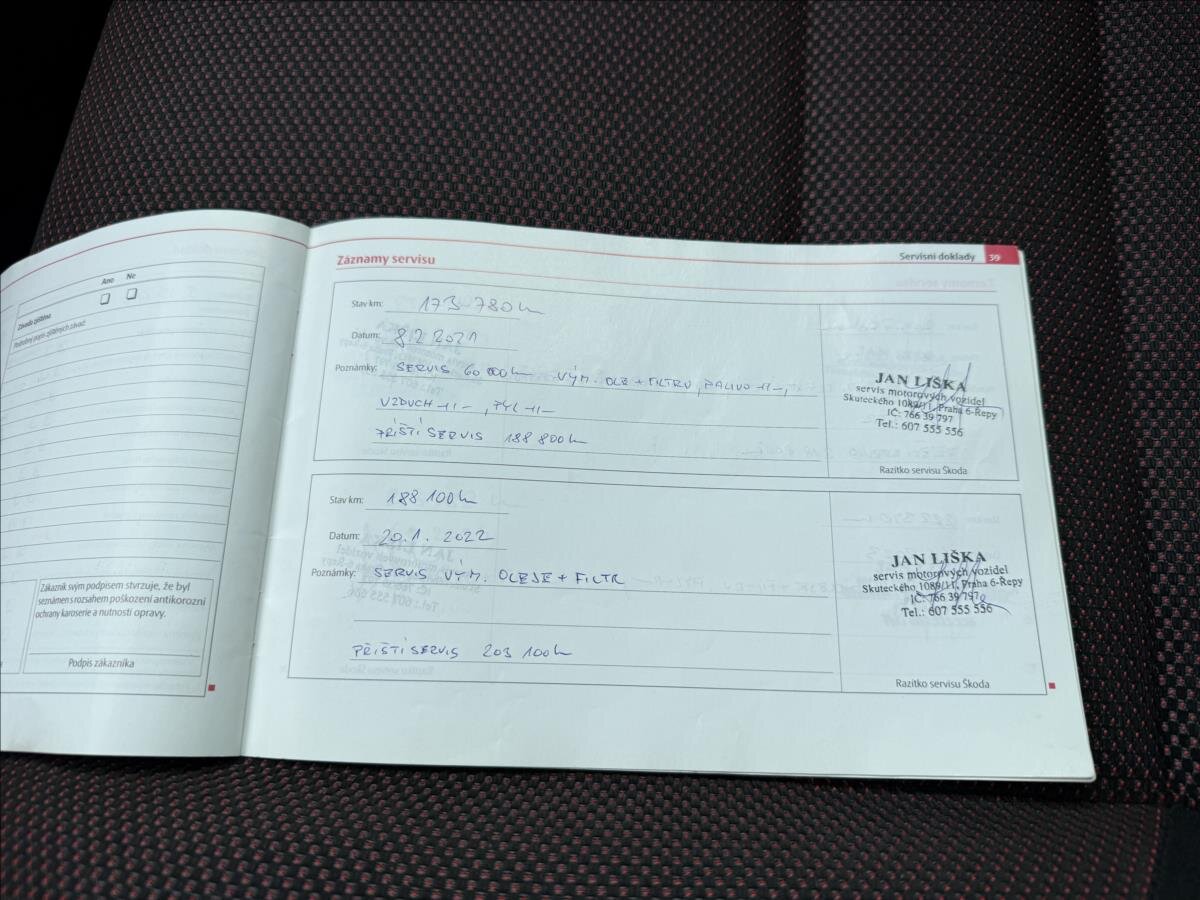 Ano Ne
Závada zjištěna
Podrobný popis zjištěných závad:
Zákazník svým podpisem stvrzuje, že byl
seznámen s rozsahem poškození antikorozní
ochrany karoserie a nutností opravy.
Podpis zákazníka
Záznamy servisu
Servisní doklady 39
Stav km: 173 780km
Datum: 8.2 2021
Poznámky: SERVIS 60 000km VÝM. OLE + FILTRU, PALIVO -11-,
VZDUCH -11-, PYL -11-
PŘÍŠTÍ SERVIS 188 800km
JAN LIŠKA
servis motorových vozidel
Skuteckého 1089/11, Praha 6-Řepy
IČ: 766 39 797
Tel.: 607 555 556
Razítko servisu Škoda
Stav km: 188 100km
Datum: 20.1. 2022
Poznámky: SERVIS VÝM. OLEJE + FILTR
PŘÍŠTÍ SERVIS 203 100km
JAN LIŠKA
servis motorových vozidel
Skuteckého 1089/11, Praha 6-Řepy
IČ: 766 39 797
Tel.: 607 555 556
Razítko servisu Škoda